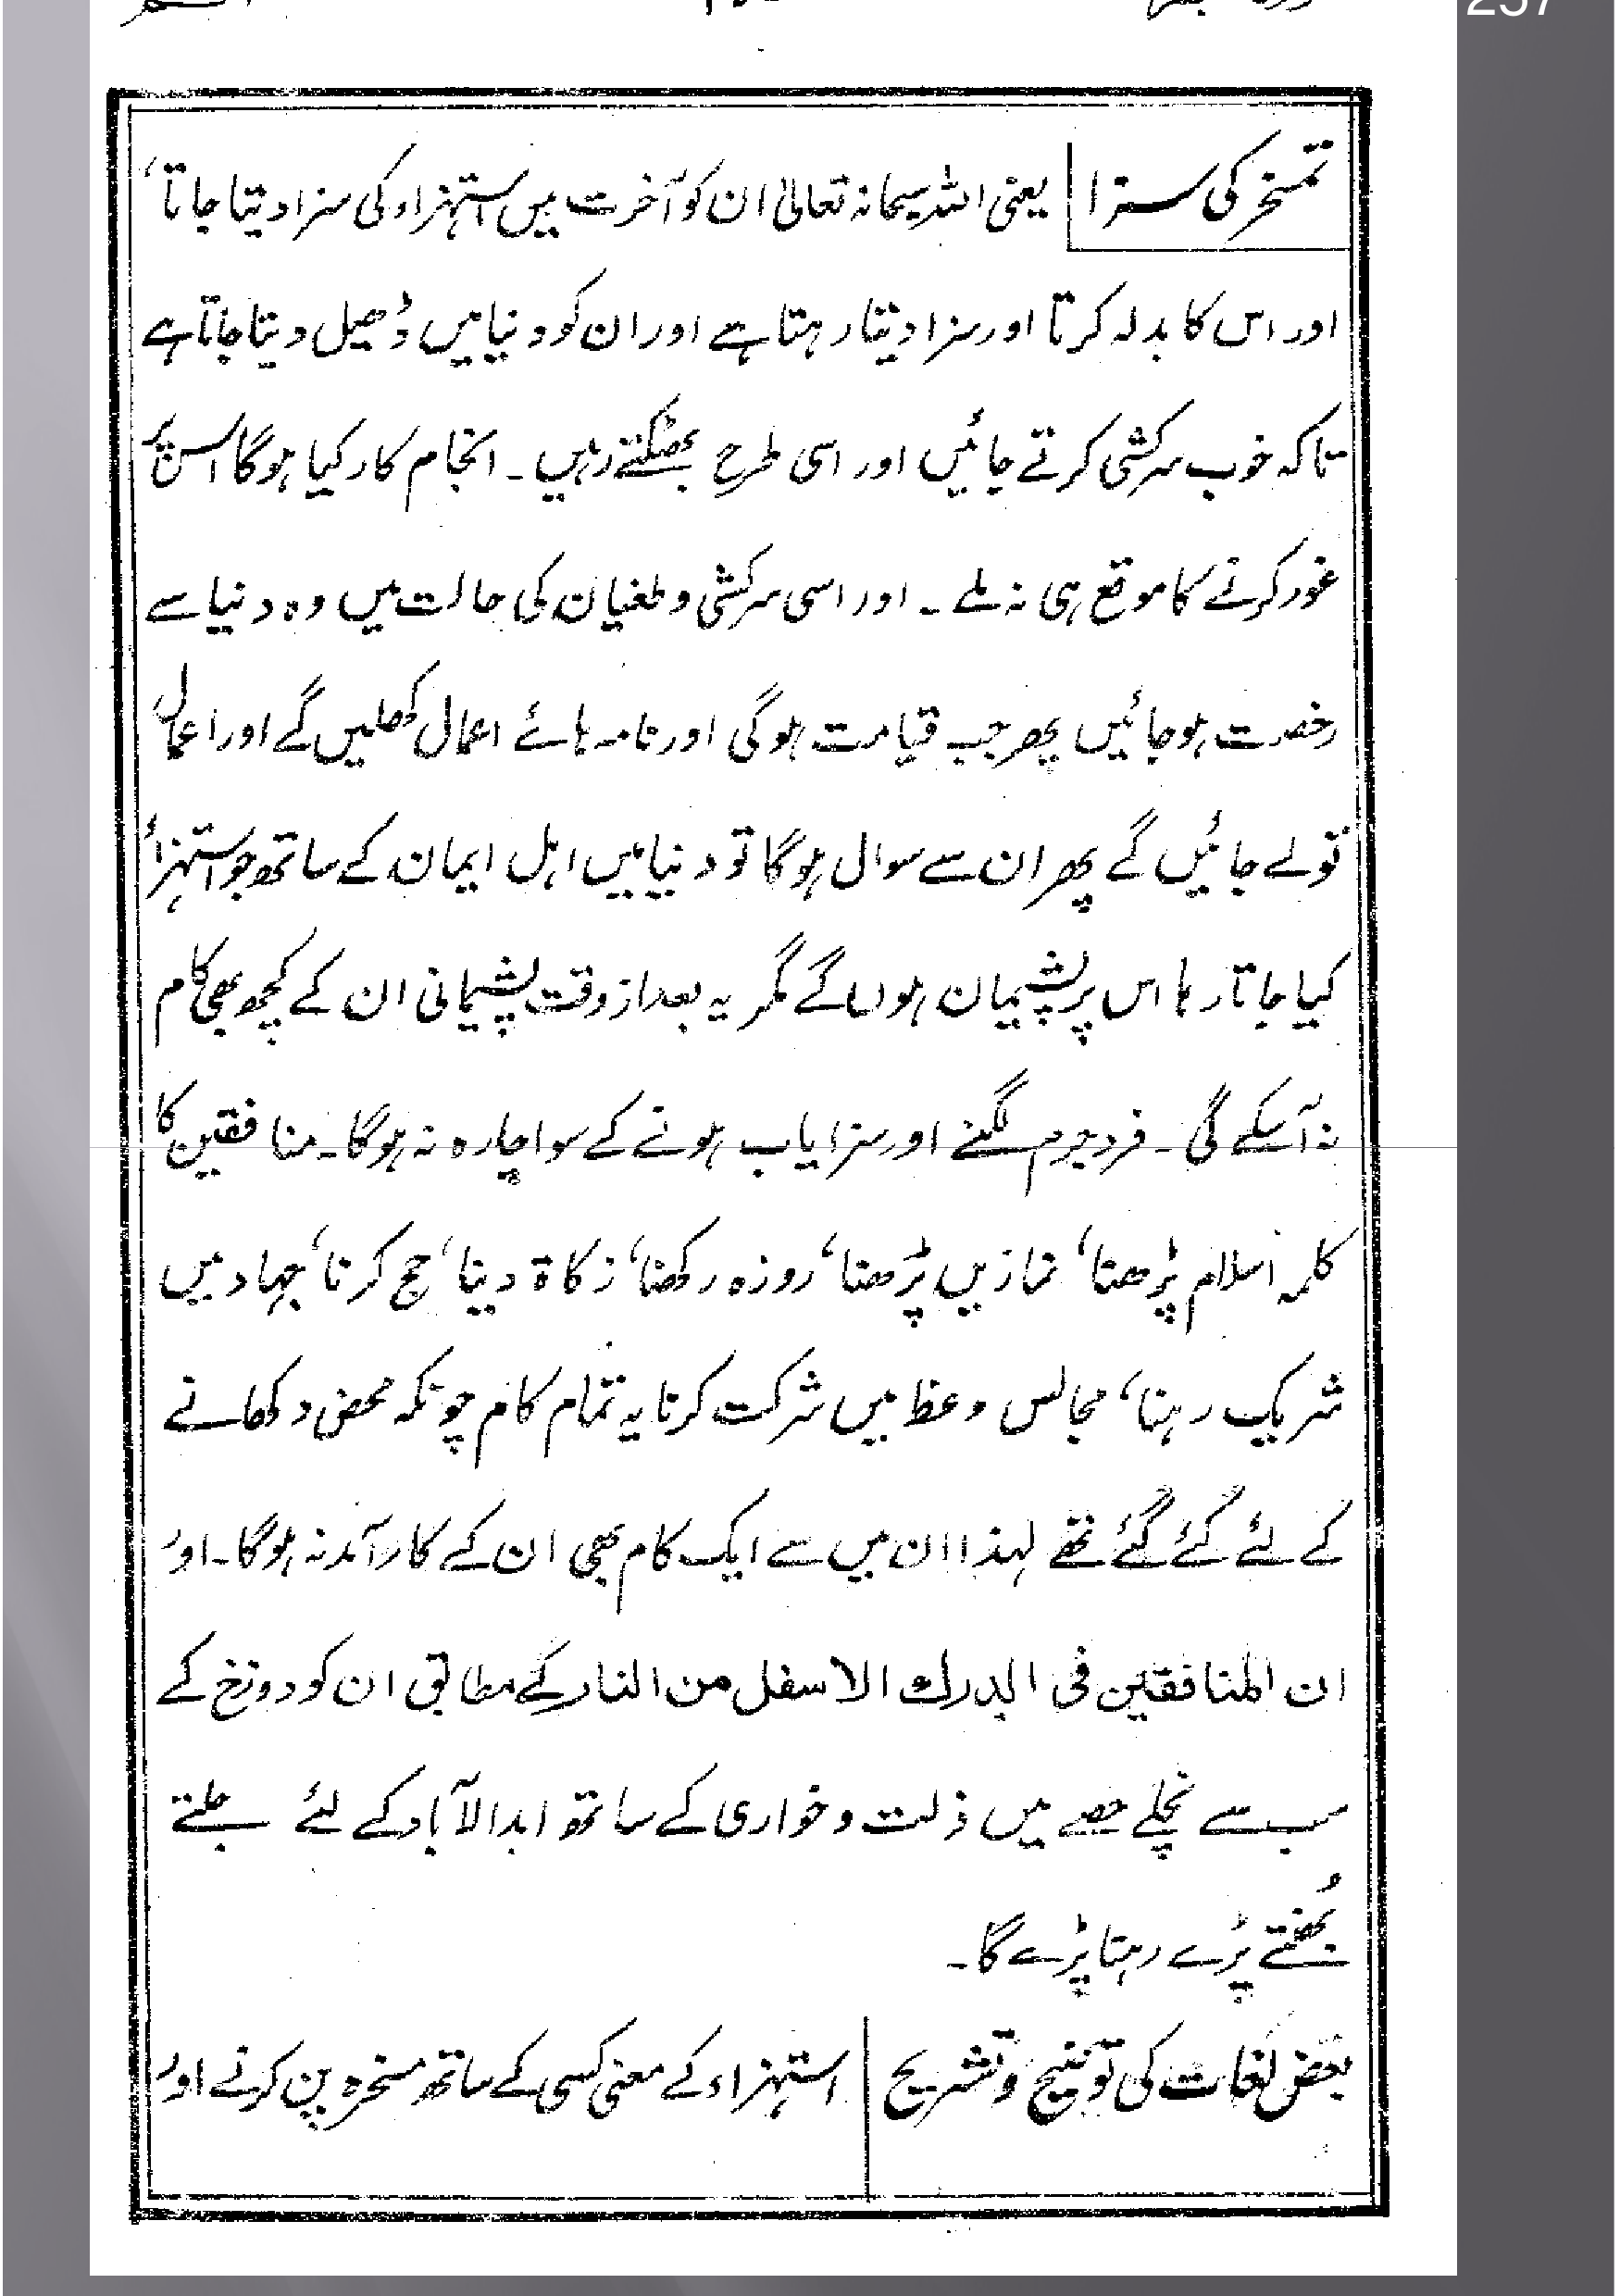 تمسخر کی سزا یعنی اللہ سبحانہ تعالیٰ ان کو آخرت میں استہزاء کی سزا دیتا جاتا،
اور اس کا بدلہ کرتا اور سزا دیتا رہتا ہے اور ان کو دنیا میں ڈھیل دیتا جاتا ہے
تاکہ خوب سرکشی کرتے جائیں اور اسی طرح بھٹکتے رہیں۔ انجام کار کیا ہوگا اس پر
غور کرنے کا موقع ہی نہ ملے۔ اور اسی سرکشی و طغیان کی حالت میں وہ دنیا سے
رخصت ہوجائیں پھر جب قیامت ہوگی اور نامہ ہائے اعمال کھلیں گے اور اعمال
تولے جائیں گے پھر ان سے سوال ہوگا تو دنیا میں اہل ایمان کے ساتھ جو استہزأ
کیا جاتا رہا اس پر پشیمان ہوں گے مگر یہ بعد از وقت پشیمانی ان کے کچھ بھی کام
نہ آسکے گی۔ فرد جرم لگنے اور سزا یاب ہونے کے سوا چارہ نہ ہوگا۔ منافقین کا
کلمہ اسلام پڑھنا، نمازیں پڑھنا، روزہ رکھنا، زکاۃ دینا، حج کرنا، جہاد میں
شریک رہنا، مجالس وعظ میں شرکت کرنا یہ تمام کام چونکہ محض دکھانے
کے لئے کئے گئے تھے لہذا ان میں سے ایک کام بھی ان کے کارآمد نہ ہوگا۔ اور
ان المنافقین فی الدرک الاسفل من النار کے مطابق ان کو دوزخ کے
سب سے نچلے حصے میں ذلت و خواری کے ساتھ ابدالآباد کے لئے جلتے
بُھنتے پڑے رہنا پڑے گا۔
بعض لغات کی توضیح و تشریح استہزاء کے معنی کسی کے ساتھ مسخرہ پن کرنے اور